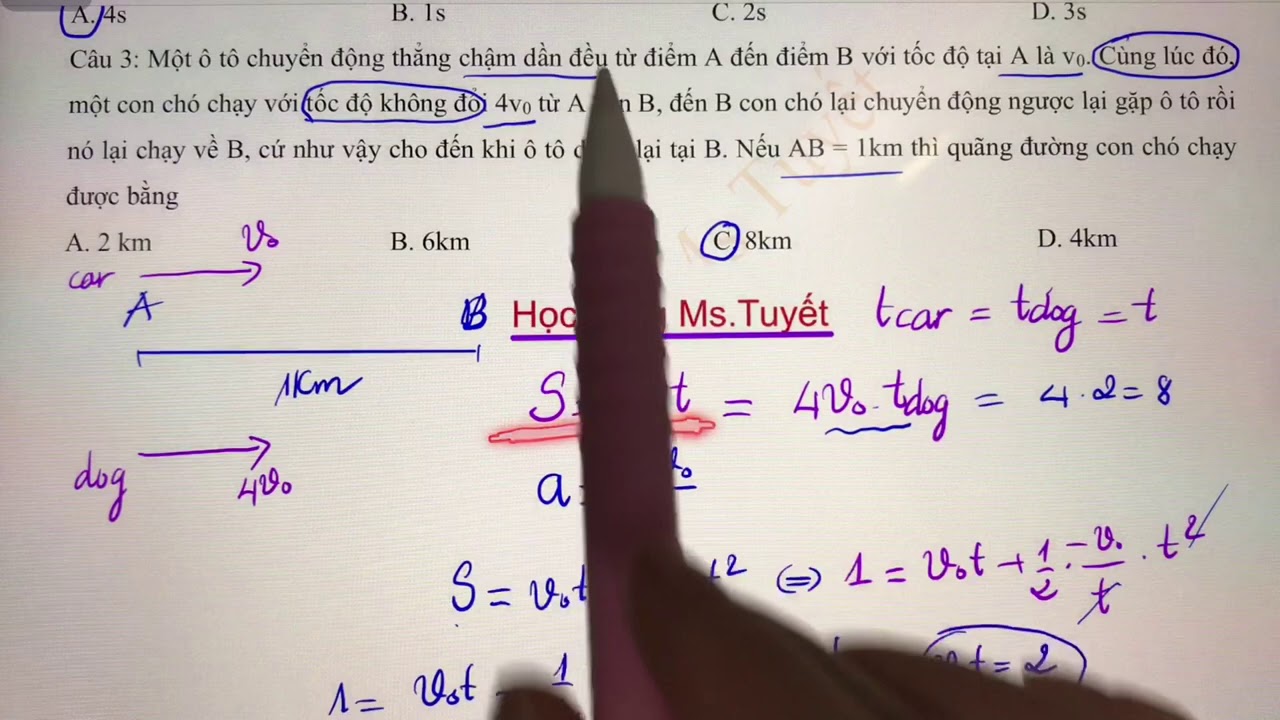 A. 4s B. 1s C. 2s D. 3s
Câu 3: Một ô tô chuyển động thẳng chậm dần đều từ điểm A đến điểm B với tốc độ tại A là v₀. Cùng lúc đó,
một con chó chạy với tốc độ không đổi 4v₀ từ A B, đến B con chó lại chuyển động ngược lại gặp ô tô rồi
nó lại chạy về B, cứ như vậy cho đến khi ô tô lại tại B. Nếu AB = 1km thì quãng đường con chó chạy
được bằng
A. 2 km B. 6km C. 8km D. 4km
car v₀
A B
1km
dog 4v₀
Học Ms.Tuyết
t car = t dog = t
S t = 4v₀ . t dog = 4 . 2 = 8
a v₀
S = v₀t t² ⇔ 1 = v₀t + 1/2 . -v₀/t . t²
1 = v₀t - 1 t = 2
Tuyết